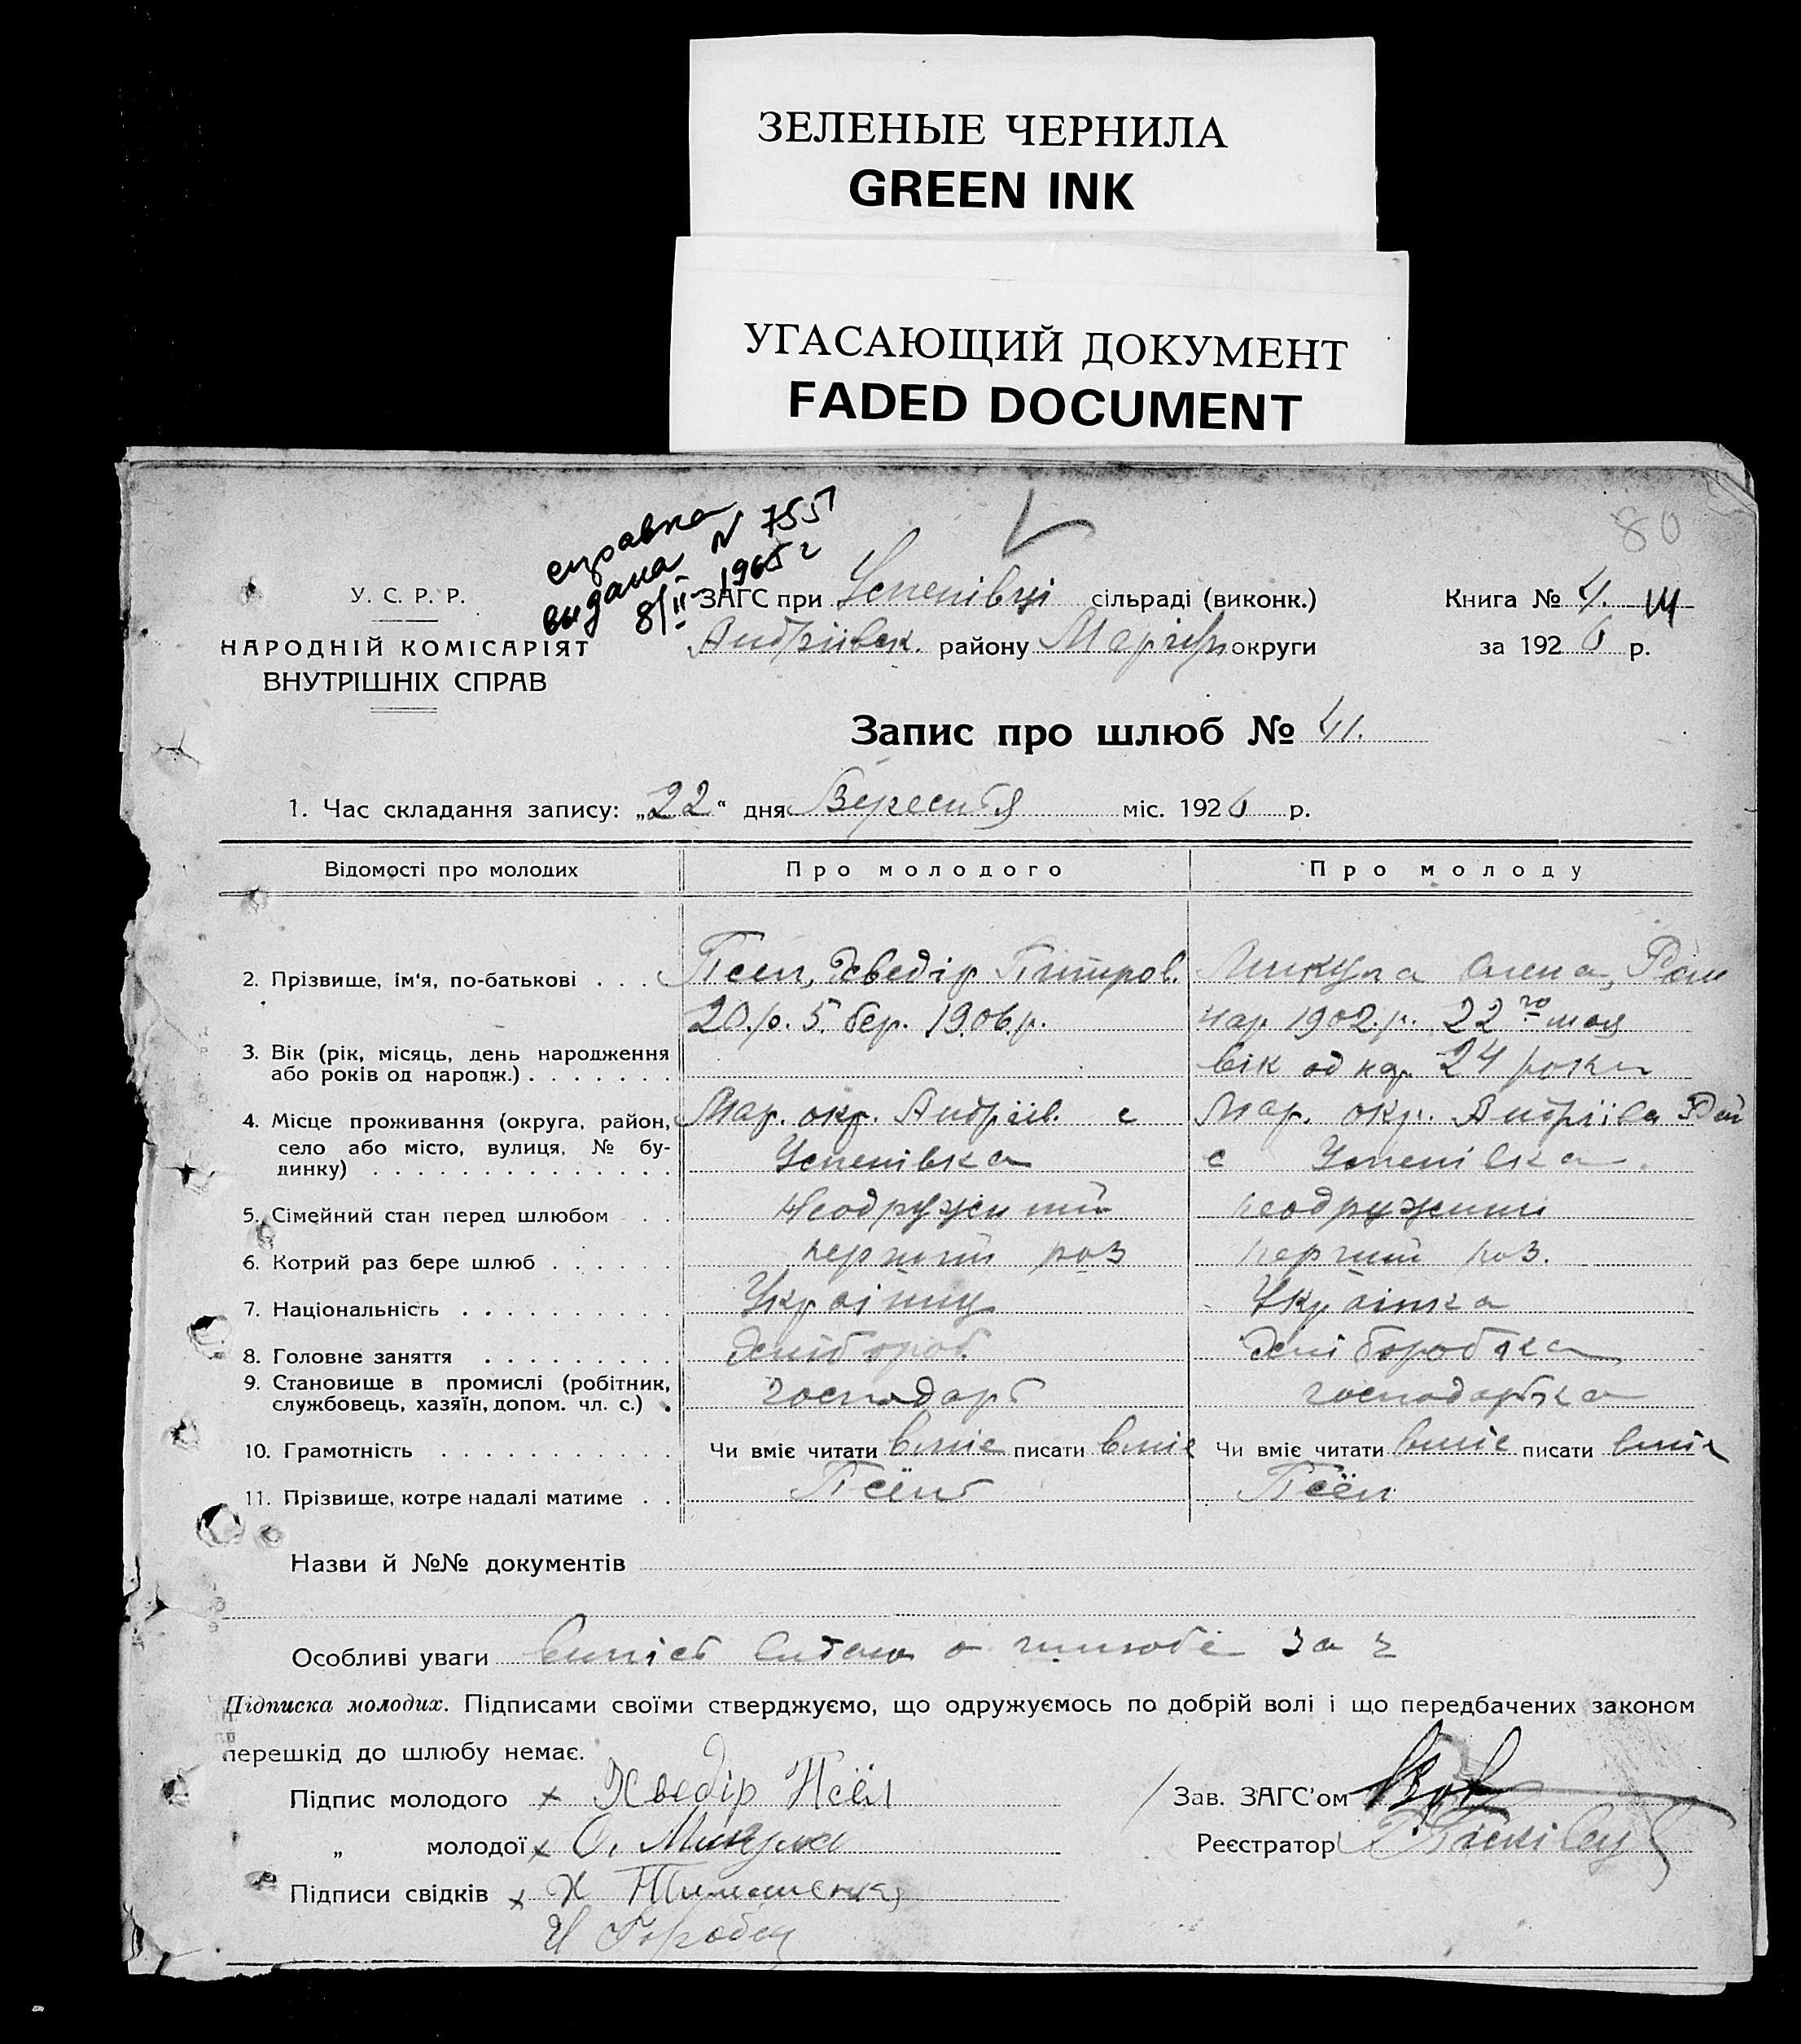 ЗЕЛЕНЫЕ ЧЕРНИЛА
GREEN INK
УГАСАЮЩИЙ ДОКУМЕНТ
FADED DOCUMENT
справка
выдана N 755
8/II-1965 г
80
У. С. Р. Р.
НАРОДНІЙ КОМІСАРІЯТ
ВНУТРІШНІХ СПРАВ
ЗАГС при Успенівці сільраді (виконк.)
Андріівск. району округи
Книга №
за 1926 р.
Запис про шлюб № 41.
1. Час складання запису: „22“ дня Вересня міс. 1926 р.
Відомості про молодих Про молодого Про молоду
2. Прізвище, ім'я, по-батькові . . . Псел, Хведір Питров. Микула Олена, Ром
20.р. 5. бер. 1906.р. нар 1902.р. 22го мая
3. Вік (рік, місяць, день народження
або років од народж.) . . . . . . . вік од нар. 24 роки
4. Місце проживання (округа, район, Мар. окр. Андріів. с Мар. окр. Андріівск Рай
село або місто, вулиця, № бу- Успенівка с Успенівка.
динку) . . . . . . . . . . . . . .
5. Сімейний стан перед шлюбом . . Неодружиний неодружині
6. Котрий раз бере шлюб . . . . . . перший раз перший раз.
7. Національність . . . . . . . . . Украіниц Украінка
8. Головне заняття . . . . . . . . .
9. Становище в промислі (робітник,
службовець, хазяїн, допом. чл. с.) . господарь господарька
10. Грамотність . . . . . . . . . . . Чи вміє читати вміє писати вміє Чи вміє читати вміє писати вміє
11. Прізвище, котре надалі матиме . . Псёл Псёл
Назви й №№ документів
Особливі уваги о шлюбе за
Підписка молодих. Підписами своїми стверджуємо, що одружуємось по добрій волі і що передбачених законом
перешкід до шлюбу немає.
Підпис молодого × Хведір Псёл
Зав. ЗАГС'ом
„ молодої × О. Микула
Реєстратор
Підписи свідків ×
И Горобец